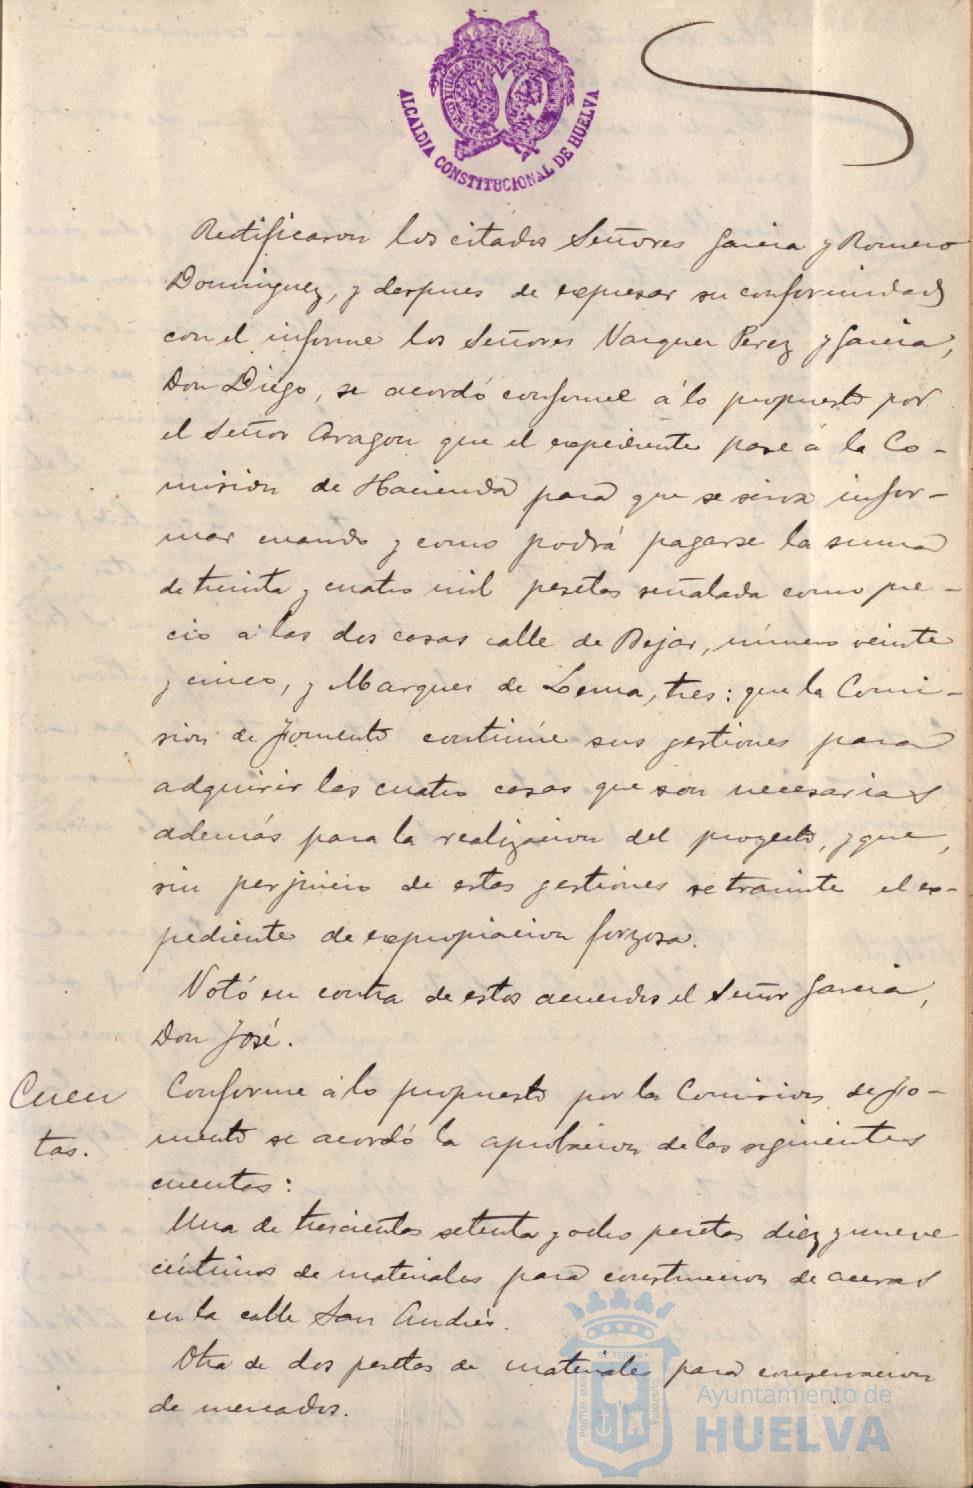 ALCALDIA CONSTITUCIONAL DE HUELVA
Rectificaron los citados Señores Garcia y Romero
Dominguez, y despues de expresar su conformidad
con el informe los Señores Vazquez Perez y Garcia,
Don Diego, se acordó conforme á lo propuesto por
el Señor Aragon que el expediente pase á la Co-
mision de Hacienda para que se sirva infor-
mar cuando y como podrá pagarse la suma
de treinta y cuatro mil pesetas señalada como pre-
cio á las dos casas calle de Bejar, número veinte
y cinco, y Marques de Lema, tres: que la Comi-
sion de Fomento continúe sus gestiones para
adquirir las cuatro casas que son necesarias
además para la realizacion del proyecto, y que,
sin perjuicio de estas gestiones se tramite el ex-
pediente de expropiacion forzosa.
Votó en contra de estos acuerdos el Señor Garcia,
Don José.
Cuen
tas.
Conforme á lo propuesto por la Comision de Fo-
mento se acordó la aprobacion de las siguientes
cuentas:
Una de trescientas setenta y ocho pesetas diez y nueve
céntimos de materiales para construccion de aceras
en la calle San Andrés.
Otra de dos pesetas de materiales para conservacion
de mercados.
Ayuntamiento de
HUELVA